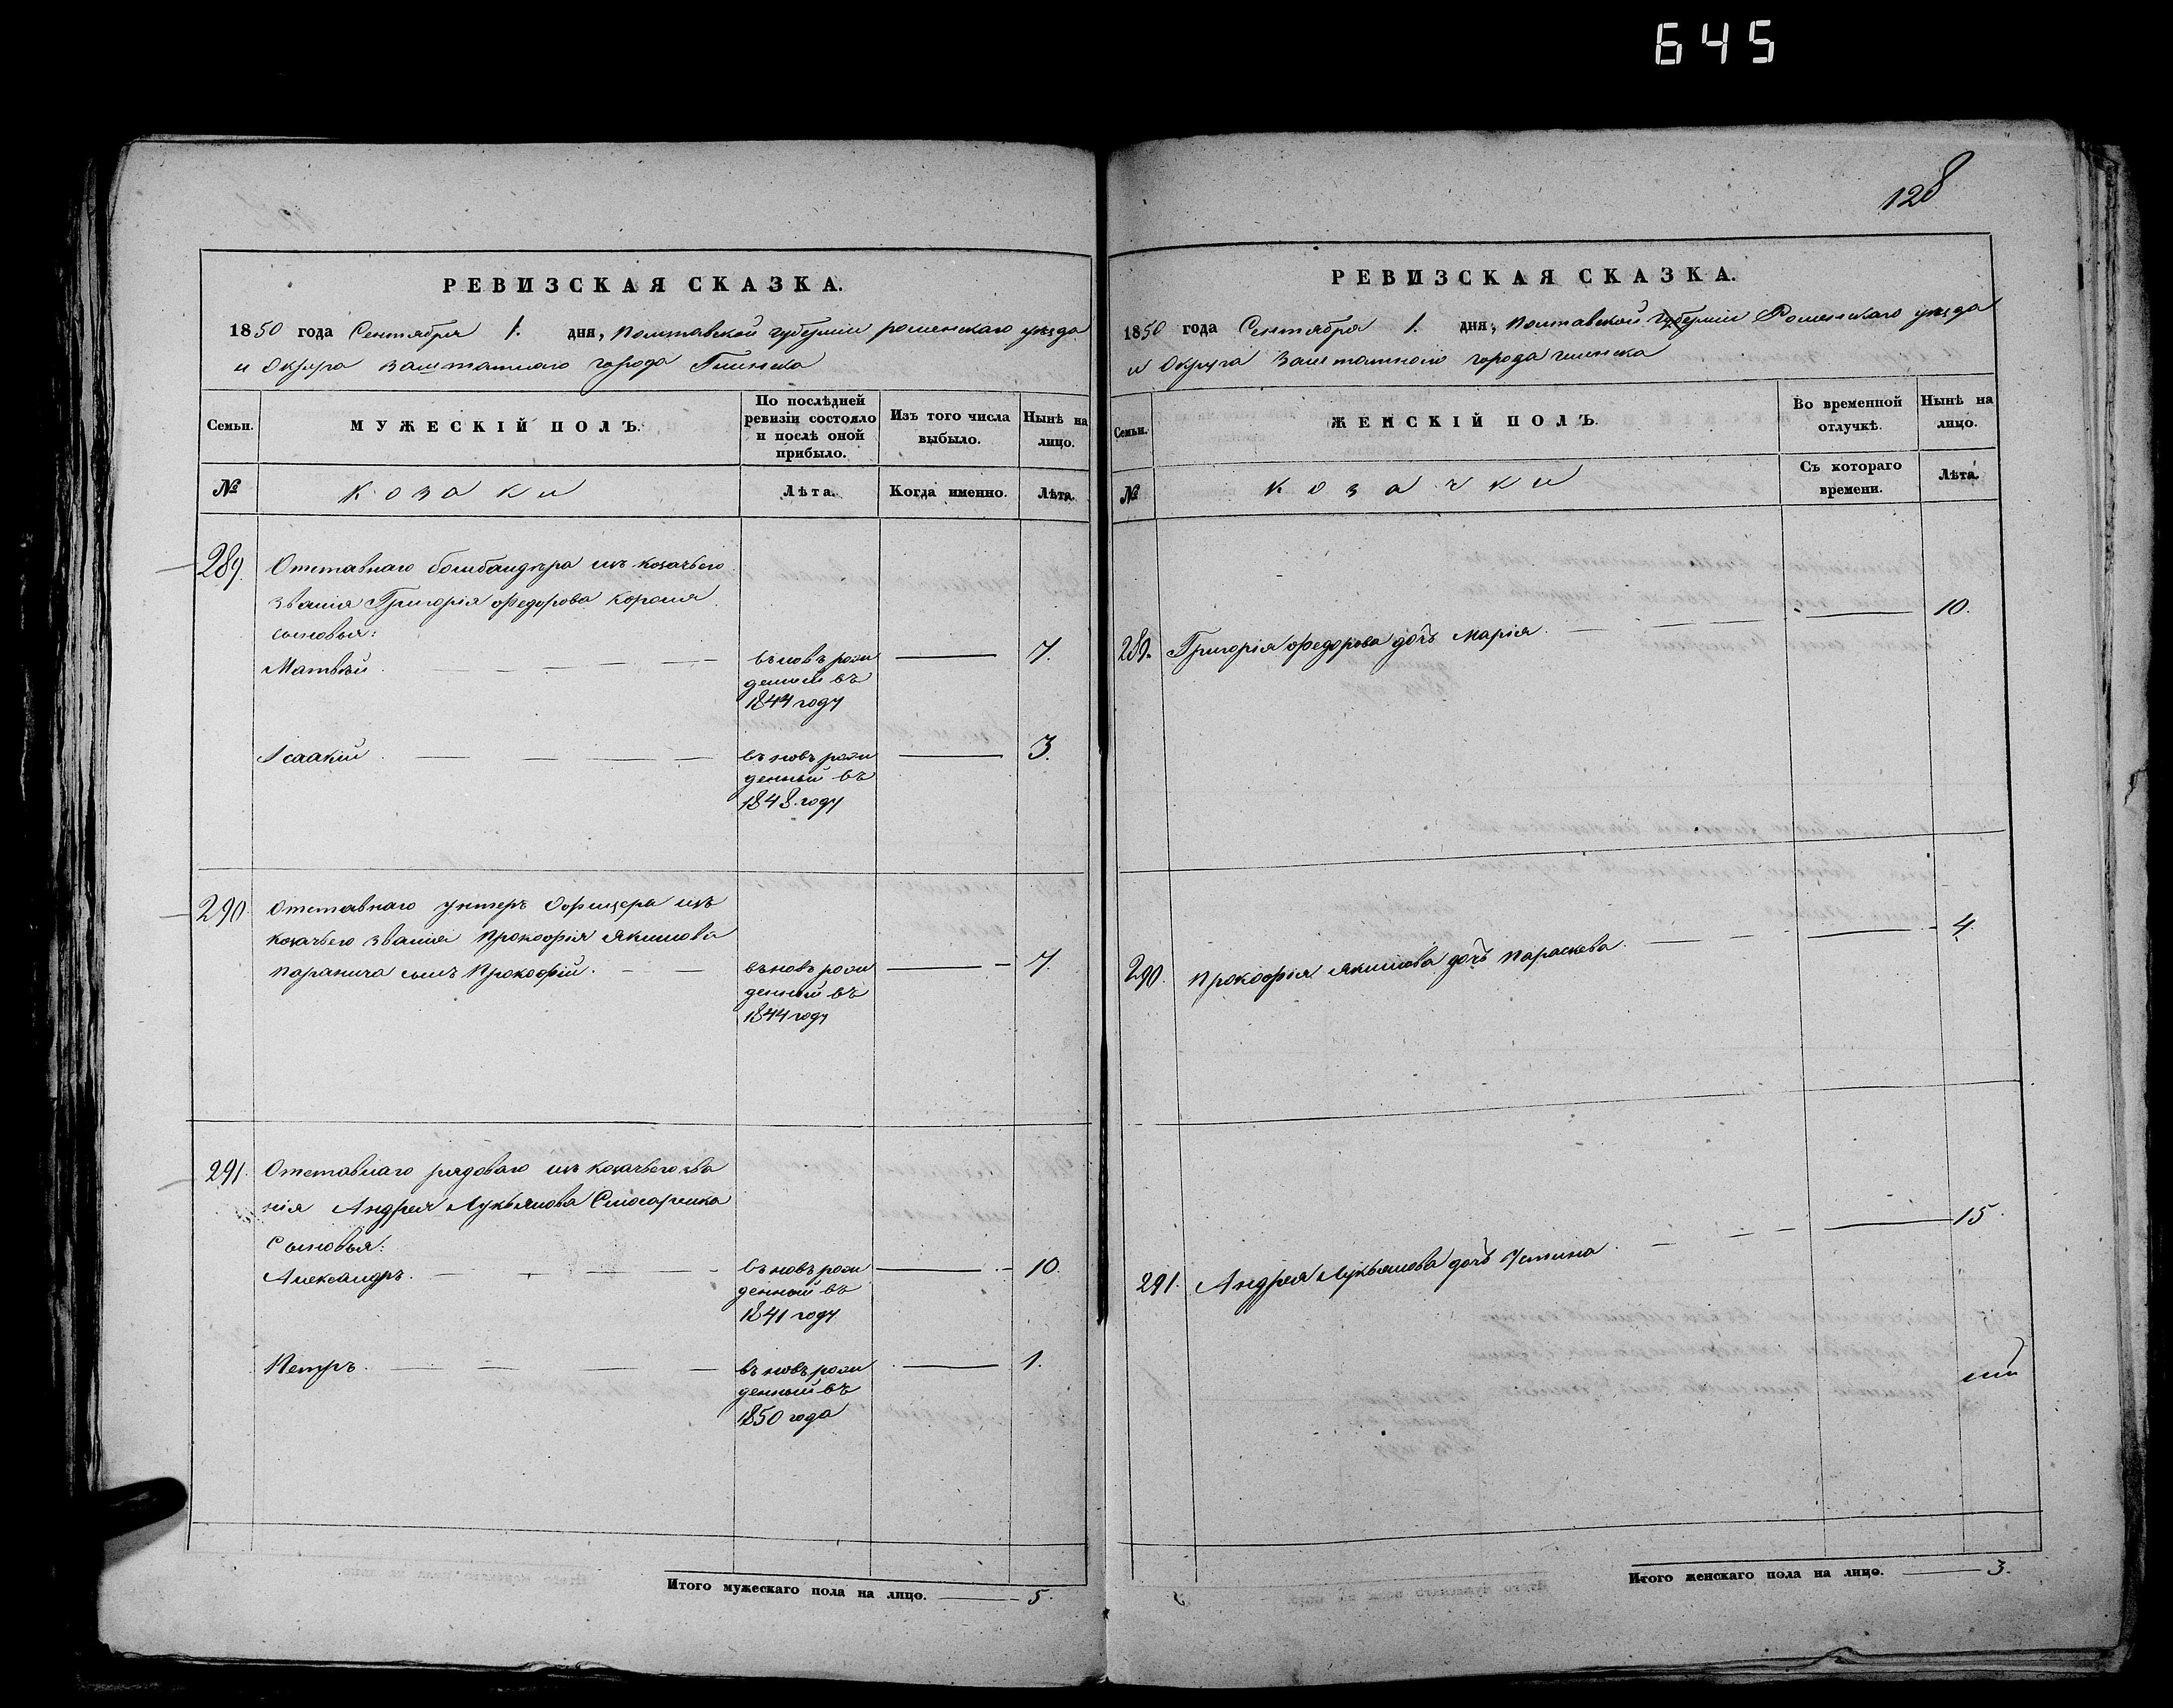 645
128
РЕВИЗСКАЯ СКАЗКА.
1850 года Сентября 1. дня, Полтавской губерніи роменскаго уезда
и Округа заштатнаго города Глинска
Семьи.
МУЖЕСКІЙ ПОЛЪ.
По послѣдней ревизіи состояло и послѣ оной прибыло.
Изъ того числа выбыло.
Нынѣ на лицо.
№
Козаки
Лѣта.
Когда именно.
Лѣта.
289. Отставнаго бомбандѣра изъ козачьего
званія Григорія Федорова Короля
сыновья:
Матвѣй. вьновь рож 7.
денный въ
1844 году
Ісаакій вьновь рож 3.
денный въ
1848. году
290 Отставнаго унтеръ Офицера изъ
козачьего званія Прокофія Якимова
сынъ Прокофій. вьновь рож 7.
денный въ
1844 году
291. Отставнаго рядоваго изъ козачьего зва
нія Андрея Лукьянова
Сыновья:
Александръ. вьновь рож 10.
денный въ
1841 году
Петръ. вьновь рож 1.
денный въ
1850 года
Итого мужескаго пола на лицо. 5.
РЕВИЗСКАЯ СКАЗКА.
1850 года Сентября 1. дня, Полтавской губерніи Роменскаго уезда
и Округа Заштатнаго города глинска
Семьи.
ЖЕНСКІЙ ПОЛЪ.
Во временной отлучкѣ.
Нынѣ на лицо.
№
Козачки
Съ котораго времени.
Лѣта.
289. Григорія Федорова дочь Марія. 10.
290. Прокофія Якимова дочь Параскева. 4.
291. Андрея Лукьянова дочь Устина 15.
Итого женскаго пола на лицо. 3.